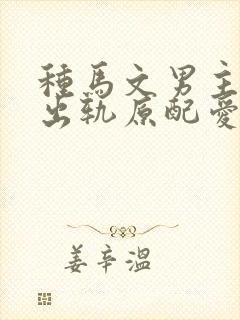 種馬文男主
出軌原配愛
姜辛溫